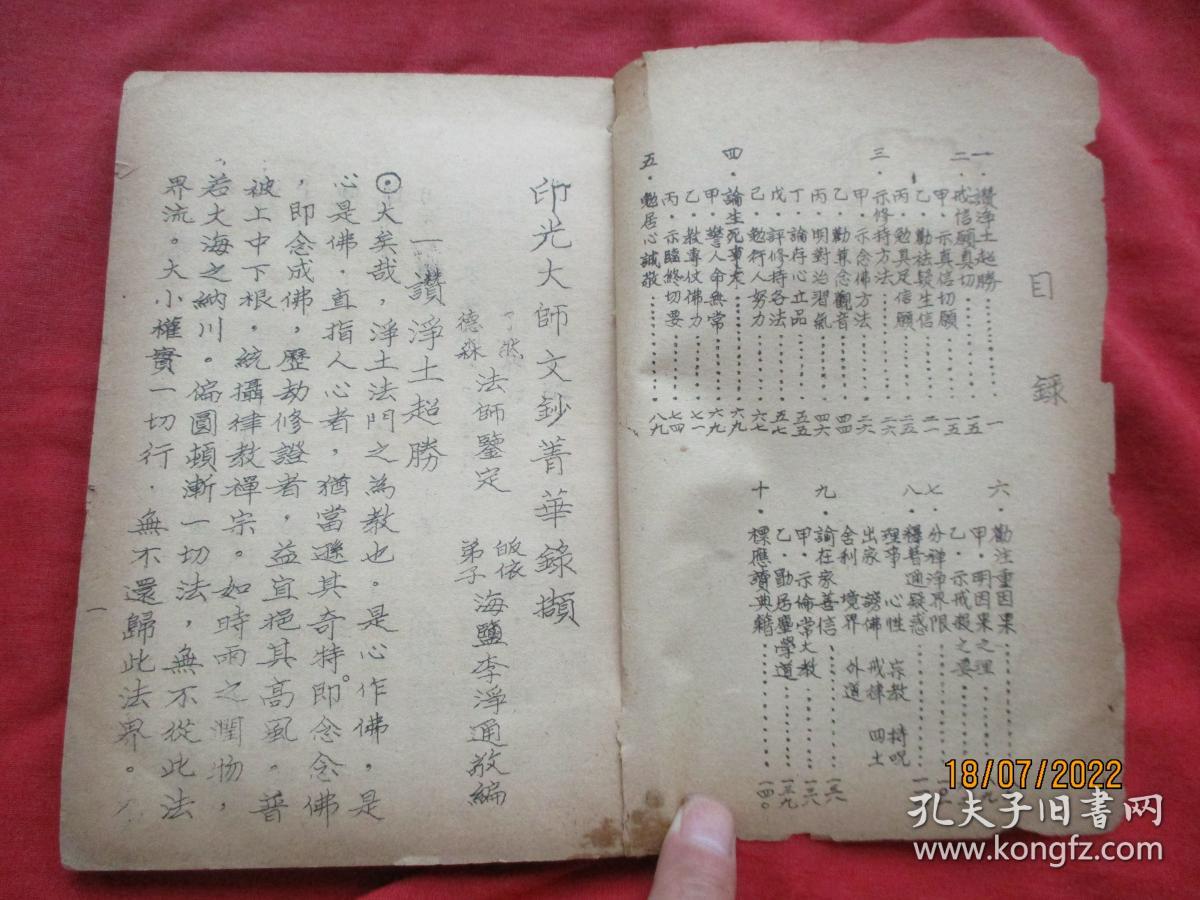 目錄
一．讚淨土超勝⋯⋯一
二．戒信願真切⋯⋯一五
甲．示真信切願⋯⋯一五
乙．勸祛疑生信⋯⋯二一
丙．勉具足信願⋯⋯二五
三．示修持方法⋯⋯二六
甲．示念佛方法⋯⋯二六
乙．勸兼念觀音⋯⋯四四
丙．明對治習氣⋯⋯四六
丁．論存心立品⋯⋯五五
戊．評修持各法⋯⋯五七
己．勉行人努力⋯⋯六七
四．論生死事大⋯⋯六九
甲．警人命無常⋯⋯六九
乙．教專仗佛力⋯⋯七一
丙．示臨終切要⋯⋯七四
五．勉居心誠敬⋯⋯八九
六．勸注重因果
甲．明因果之理
乙．示戒殺之要
七．分禪淨界限
八．釋普通疑惑
理事 心性 宗教 持呪
出家 謗佛 戒律 四土
舍利 境界 外道
九．諭在家善信⋯⋯一三六
甲．示倫常大教⋯⋯一三六
乙．勖居塵學道⋯⋯一三九
十．標應讀典籍⋯⋯一四〇
印光大師文鈔菁華錄擷
了然
德森 法師鑒定 皈依
弟子 海鹽李淨通敬編
一讚淨土超勝
⊙大矣哉，淨土法門之為教也。是心作佛，是
心是佛．直指人心者，猶當遜其奇特。即念念佛
，即念成佛，歷劫修證者，益宜挹其高風。普
被上中下根，統攝律教禪宗。如時雨之潤物，
若大海之納川。偏圓頓漸一切法，無不從此法
界流。大小權實一切行．無不還歸此法界。
一
18/07/2022
孔夫子旧书网
www.kongfz.com